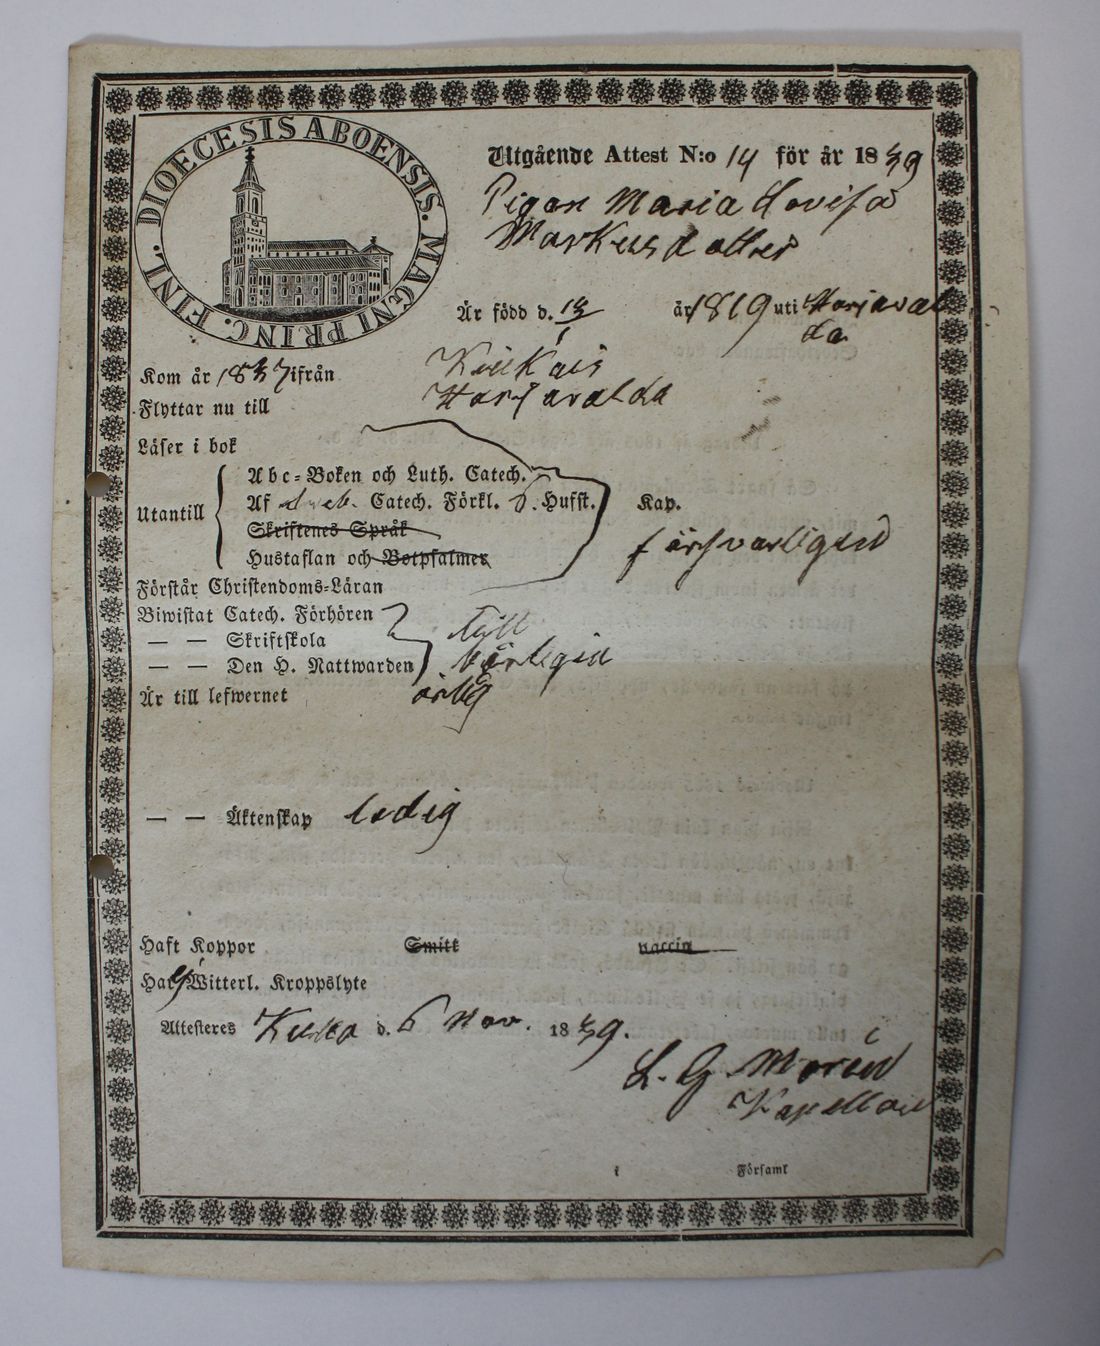 DIOECESIS ABOENSIS. MAGNI PRINC. FINL.
Utgående Attest N:o 14 för år 1839
Pigan Maria Lovisa
Markusdotter
Är född d. år 1819 uti Harjaval
da
Kom år 1837 ifrån
Flyttar nu till Harjavalda
Läser i bok
Utantill
Abc-Boken och Luth. Catech.
Af Catech. Förkl. 6. Husst. Kap.
Skriftenes Språk
Hustaflan och Botpsalmer
försvarligen
Förstår Christendoms-Läran
Biwistat Catech. Förhören
— — Skriftskola
— — Den H. Nattwarden
Är till lefwernet ärlig
— — Äktenskap ledig
Haft Koppor Smitt vaccin
Har ej Witterl. Kroppslyte
Attesteres d. 6 Nov. 1839.
L. G. Morén
Kapellan
i Församl